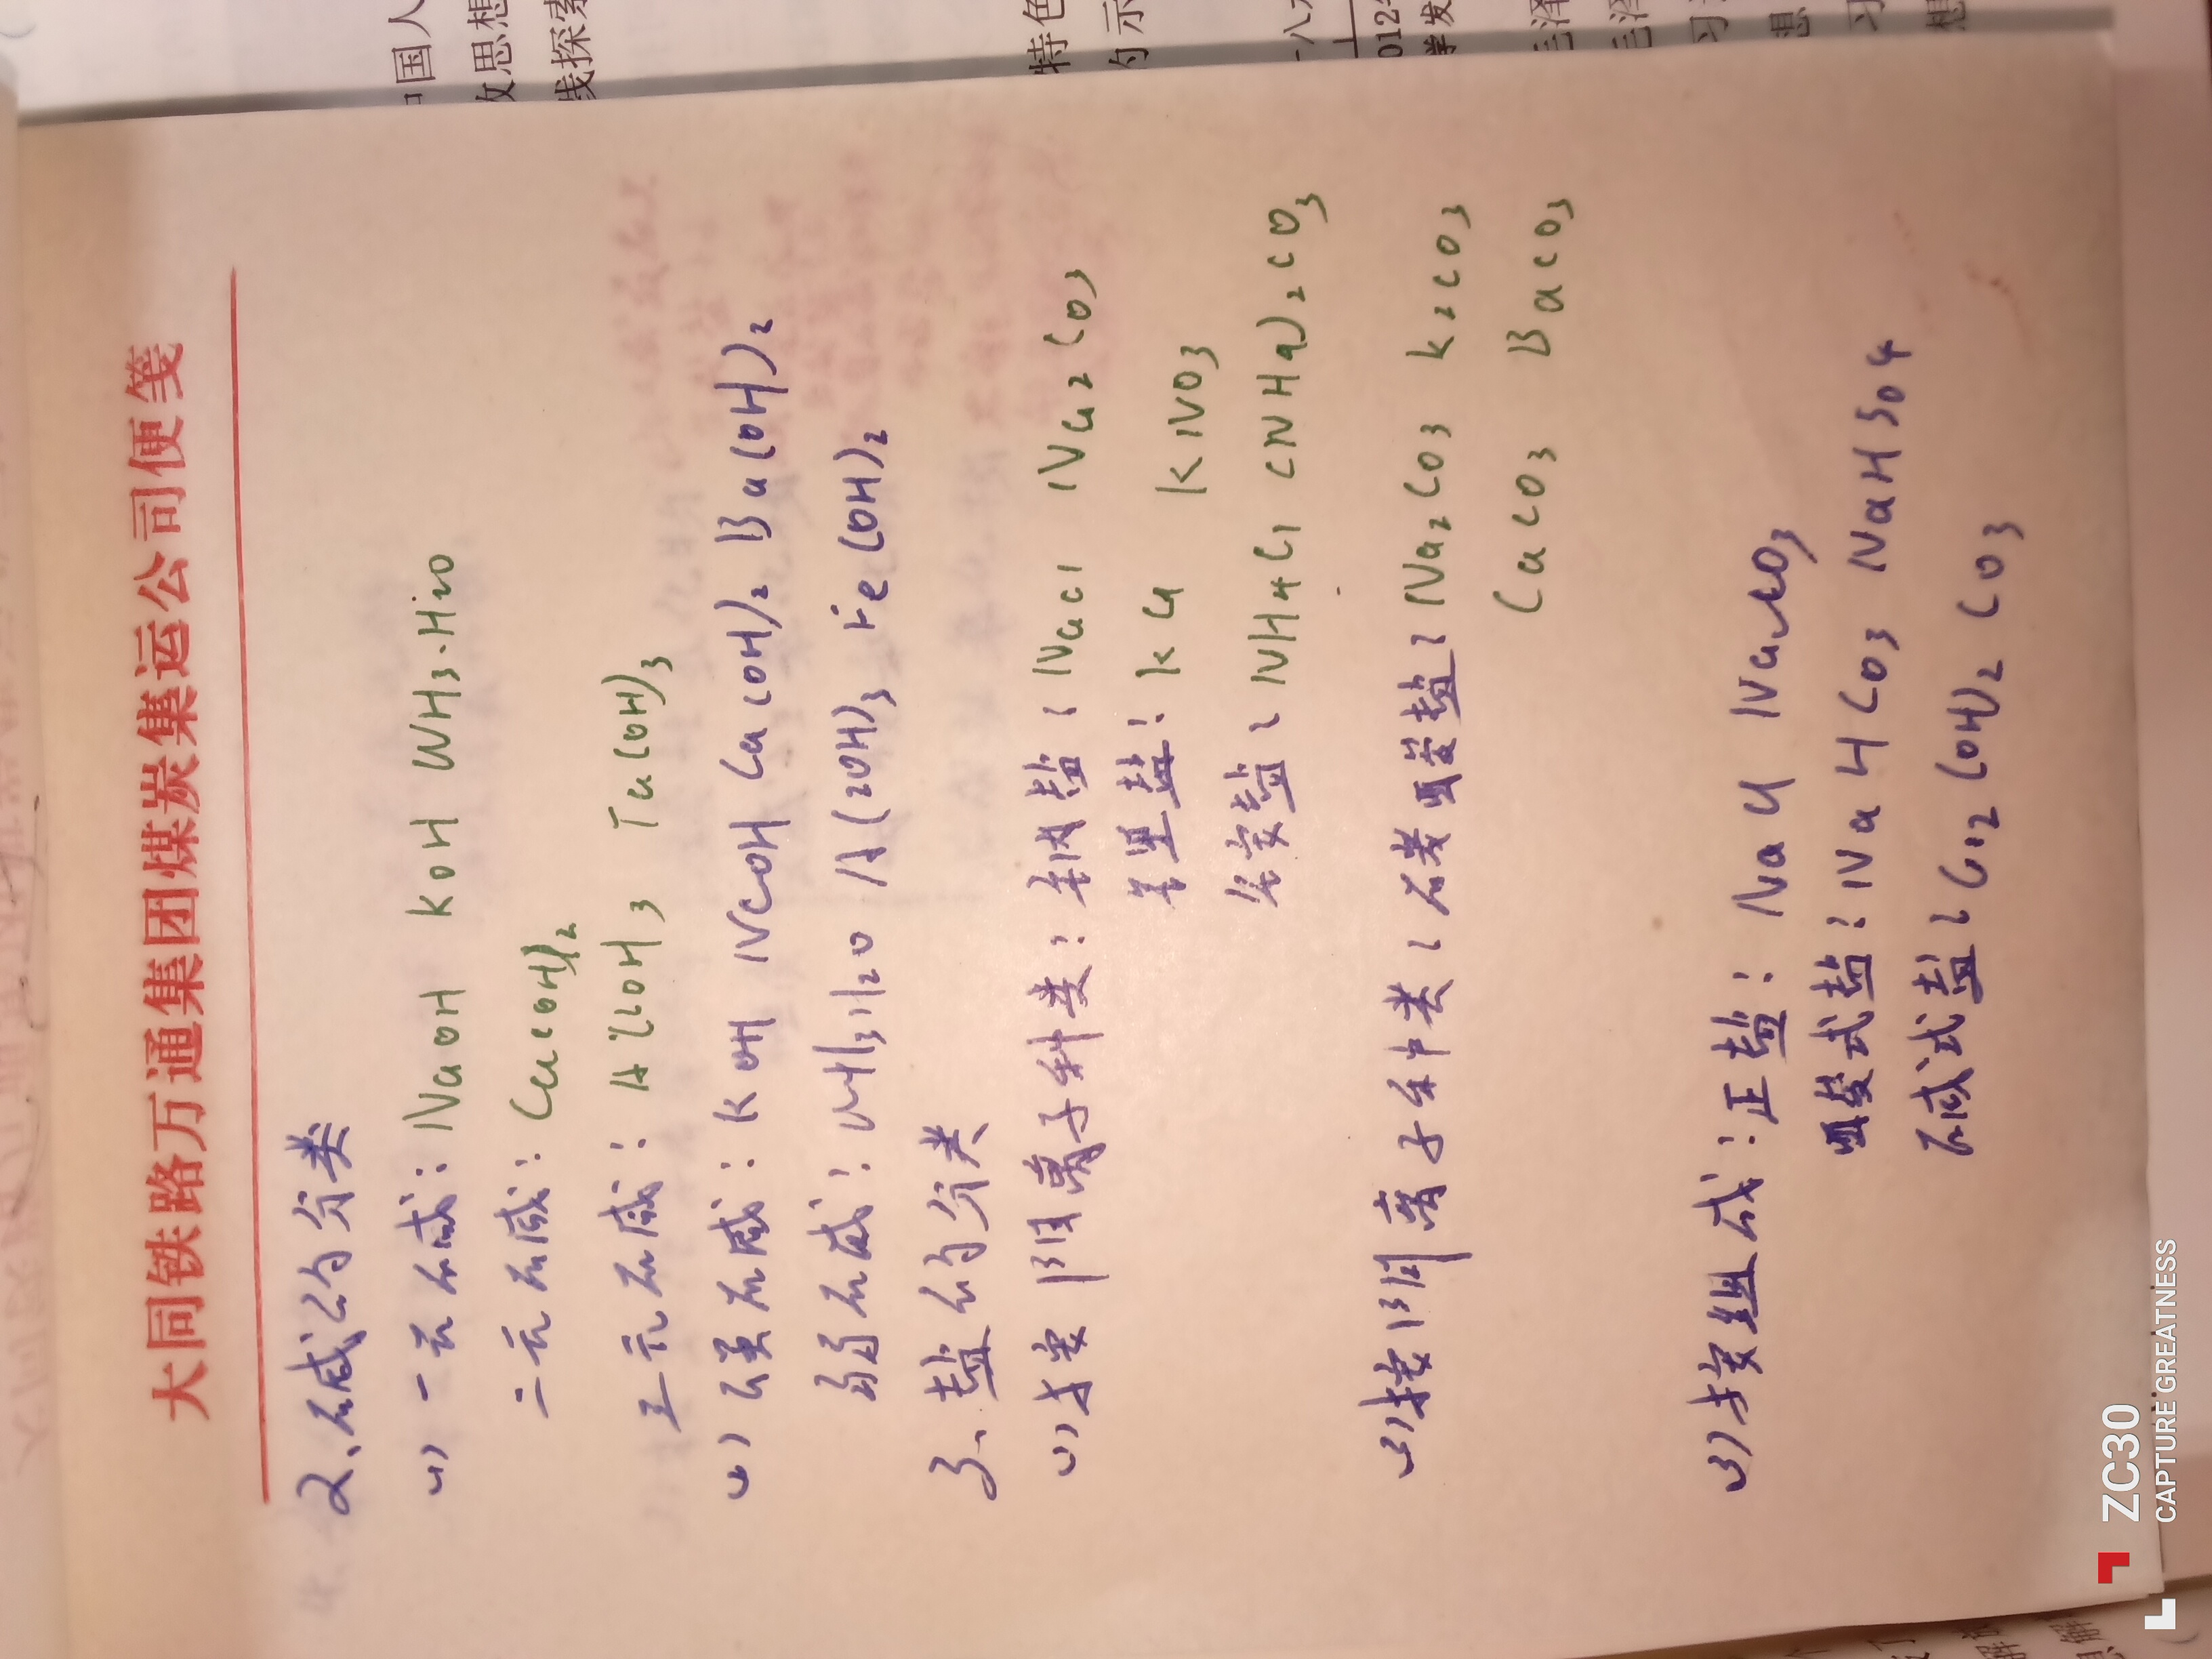 大同铁路万通集团煤炭集运公司便笺
2、碱的分类
(1) 一元碱: NaOH KOH NH3·H2O
二元碱: Ca(OH)2
三元碱: Al(OH)3
(2) 强碱: KOH NaOH Ca(OH)2 Ba(OH)2
弱碱: NH3H2O Al(OH)3 Fe(OH)2
3、盐的分类
(1) 按阳离子种类: 钠盐: NaCl Na2CO3
钾盐: KCl KNO3
铵盐: NH4Cl (NH4)2CO3
(2) 按阴离子种类: 碳酸盐: Na2CO3 K2CO3
CaCO3 BaCO3
(3) 按组成: 正盐: NaCl Na2CO3
酸式盐: NaHCO3 NaHSO4
碱式盐: Cu2(OH)2CO3
中国人
改思想
线探索
特色
一八
012
学发
毛泽
毛泽
习
想
习
想
ZC30
CAPTURE GREATNESS